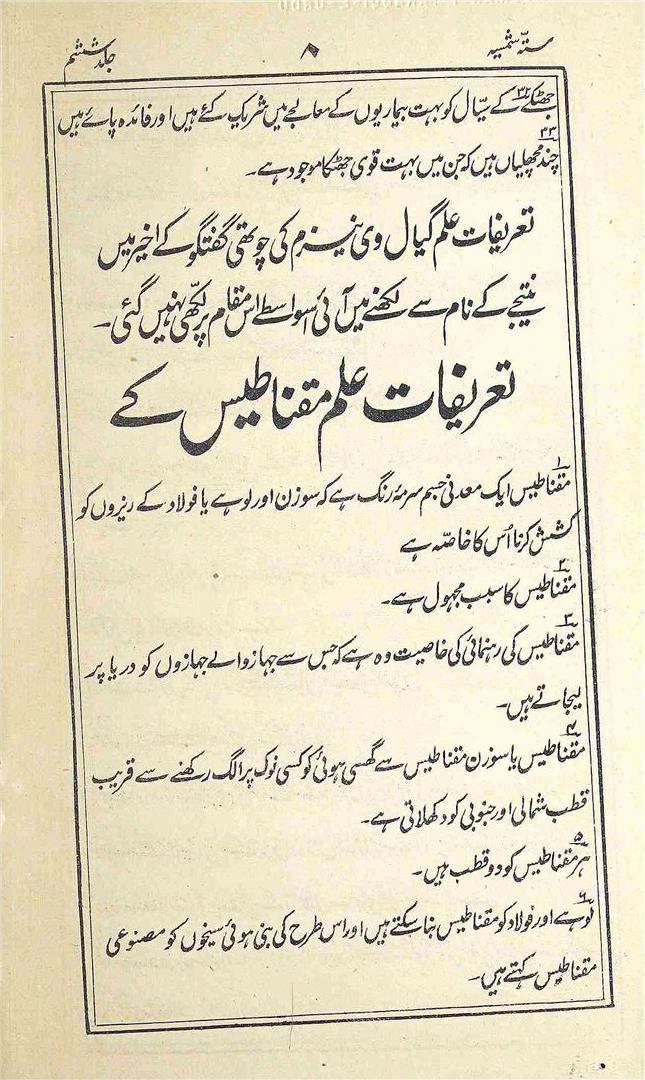 ستۂ شمسیہ ۸ جلد ششم
۳۲ جھٹکے کے سیّال کو بہت بیماریوں کے معالجے میں شریک کئے ہیں اور فائدہ پائے ہیں
۳۳ چند مچھلیاں ہیں کہ جن میں بہت قوی جھٹکا موجود ہے۔
تعریفات علم گیال وی نیزم کی چوتھی گفتگو کے اخیر میں
نتیجے کے نام سے لکھنے میں آئی اسواسطے اس مقام پر لکّھی نہیں گئی۔
تعریفات علم مقناطیس کے
۱ مقناطیس ایک معدنی جسم سرمۂ رنگ ہے کہ سوزن اور لوہے یا فولاد کے ریزوں کو
کشش کرنا اُس کا خاصّہ ہے
۲ مقناطیس کا سبب مجہول ہے۔
۳ مقناطیس کی رہنمائی کی خاصیت وہ ہے کہ جس سے جہاز والے جہازوں کو دریا پر
لیجاتے ہیں۔
۴ مقناطیس یا سوزن مقناطیس سے گھسی ہوئی کو کسی نوک پر الگ رکھنے سے قریب
قطب شمالی اور جنوبی کو دکھلاتی ہے۔
۵ ہر مقناطیس کو دو قطب ہیں۔
۶ لوہے اور فولاد کو مقناطیس بنا سکتے ہیں اور اس طرح کی بنی ہوئی سیخوں کو مصنوعی
مقناطیس کہتے ہیں۔